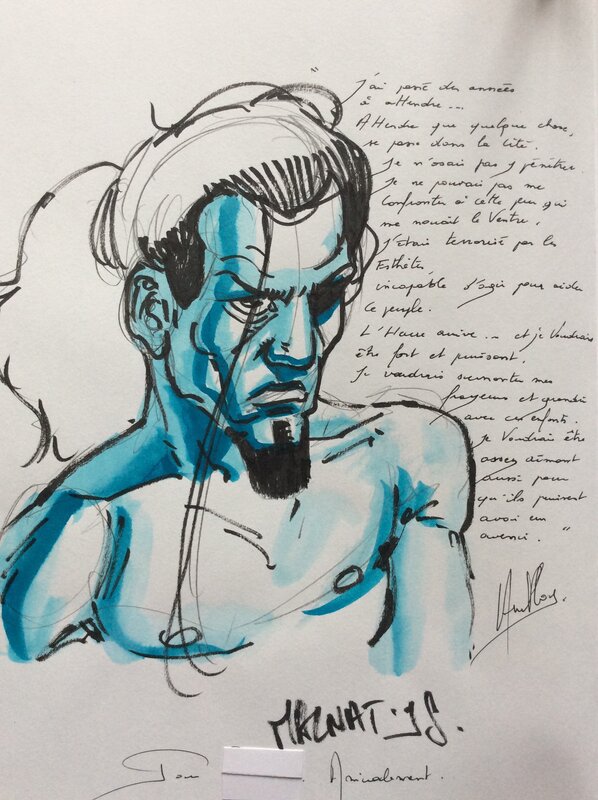 "J'ai passé des années
à attendre...
Attendre que quelque chose,
se passe dans la Cité.
Je n'osais pas y pénétrer.
Je ne pouvais pas me
confronter à cette peur qui
me nouait le Ventre.
J'étais terrorisé par les
Esthètes,
incapable d'agir pour aider
ce peuple.
L'Heure arrive... et je Voudrais
être fort et puissant.
Je voudrais surmonter mes
frayeurs et grandir
avec ces enfants.
Je Voudrais être
assez aimant
aussi pour
qu'ils puissent
avoir un
avenir."
Pour
Amicalement.